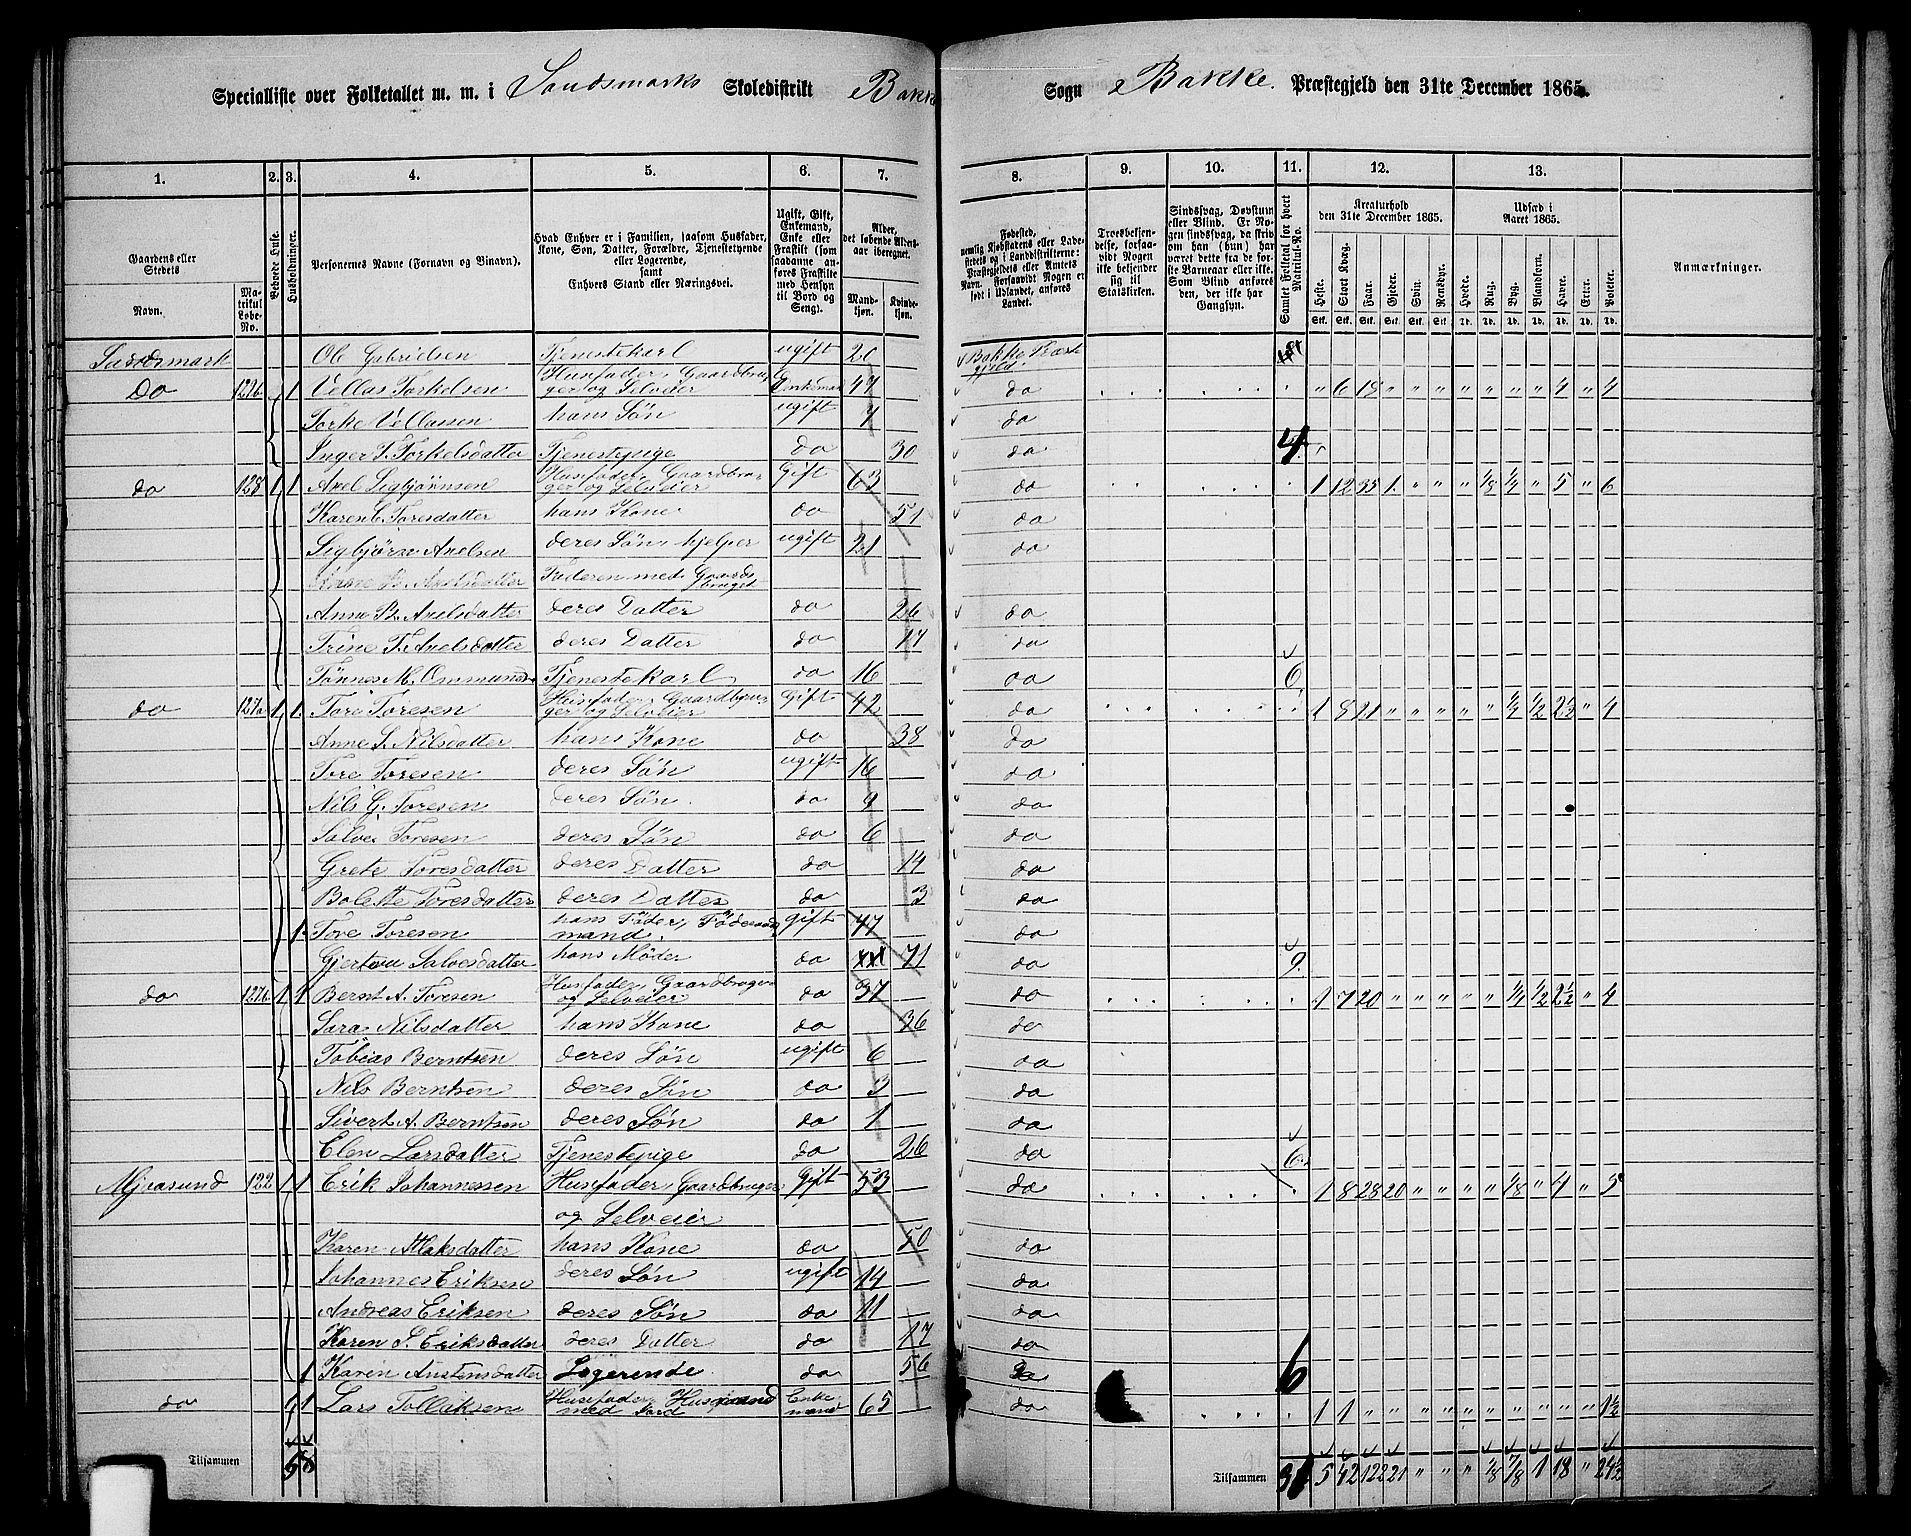 Specialliste over Folketallet m. m. i Sandsmarks Skoledistrikt Bakke Sogn Bakke Præstegjeld den 31te December 1865.
1. 2. 3. 4. 5. 6. 7. 8. 9. 10. 11. 12. 13.
Gaardens eller Stedets
Navn.
Matrikul Løbe-No.
Beboede Huse.
Husholdninger.
Personernes Navne (Fornavn og Binavn).
Hvad Enhver er i Familien, saasom Husfader, Kone, Søn, Datter, Forældre, Tjenestetyende eller Logerende, samt Enhvers Stand eller Næringsvei.
Ugift, Gift, Enkemand, Enke eller Fraskilt (som saadanne anføres Fraskilte med Hensyn til Bord og Seng).
Alder, det løbende Alders-aar iberegnet.
Mandkjøn.
Kvindekjøn.
Fødested,
Troesbekjendelse, forsaavidt Nogen ikke bekjender sig til Statskirken.
Sindssvag, Døvstum eller Blind.
Samlet Folketal for hvert Matrikul-No.
Kreaturhold den 31te December 1865.
Heste. Stort Kvæg. Faar. Gjeder. Svin. Rensdyr.
Udsæd i Aaret 1865.
Hvede. Rug. Byg. Blandkorn. Havre. Erter. Poteter.
Anmærkninger.
Sandsmark Ole Gabrielsen Tjenestekarl ugift 20 Bakke Præstegjeld
do 121b 1 Vellas Torkelsen Husfader, Gaardbruger og Selveier Enkemand 47 do " 6 18 " " " " " " " 4 " 4
Torke Vellassen hans Søn ugift 7 do
Inger T. Torkelsdatter Tjenestepige do 30 do 4
do 128 1 1 Axel Sigbjørnsen Husfader, Gaardbruger og Selveier Gift 63 do 1 12 35 1 " " " 1/8 1/4 " 5 " 6
Karen C. Toresdatter hans Kone do 51 do
Sigbjørn Axelsen deres Søn, hjelper ugift 21 do
Faderen med Gaardsbruget
Anne B. Axelsdatter deres Datter do 26 do
Trine T. Axelsdatter deres Datter do 17 do
Tönnes M. Ommunds Tjenestekarl do 16 do 6
do 127a 1 1 Tore Toresen Husfader, Gaardbruger og Selveier Gift 42 do 1 8 21 " " " " " 1/4 1/2 2 1/2 " 4
Anne S. Nilsdatter hans Kone do 38 do
Tore Toresen deres Søn ugift 16 do
Nils G. Toresen deres Søn do 9 do
Salve Toresen deres Søn do 6 do
Grete Toresdatter deres Datter do 14 do
Bolette Toresdatter deres Datter do 3 do
1 Tore Toresen hans Fader, Föderaadsmand gift 77 do
Gjertru Salvesdatter hans Moder do 71 do 9
do 127b 1 1 Bernt A. Toresen Husfader, Gaardbruger og Selveier do 37 do 1 7 20 " " " " " 1/4 1/2 2 1/2 " 4
Sara Nilsdatter hans Kone do 36 do
Tobias Berntsen deres Søn ugift 6 do
Nils Berntsen deres Søn do 3 do
Sivert A. Berntsen deres Søn do 1 do
Elen Larsdatter Tjenestepige do 26 do 6
Mjaasund 122 1 1 Erik Johannessen Husfader, Gaardbruger Gift 53 do 1 8 28 20 " " " " 1/8 " 4 " 5
og Selveier
Karen Atlaksdatter hans Kone do 50 do
Johannes Eriksen deres Søn ugift 14 do
Andreas Eriksen deres Søn do 11 do
Karen S. Eriksdatter deres Datter do 17 do
1 Karen Austensdatter Logerende do 56 do 6
do 1 1 Lars Tollaksen Husfader, Husmand med Jord Enkemand 65 do 1 1 " " " " " " " " " " 1 1/2
Tilsammen 5
Tilsammen 31 5 42 122 21 " " " 1/8 7/8 1 18 " 24 1/2